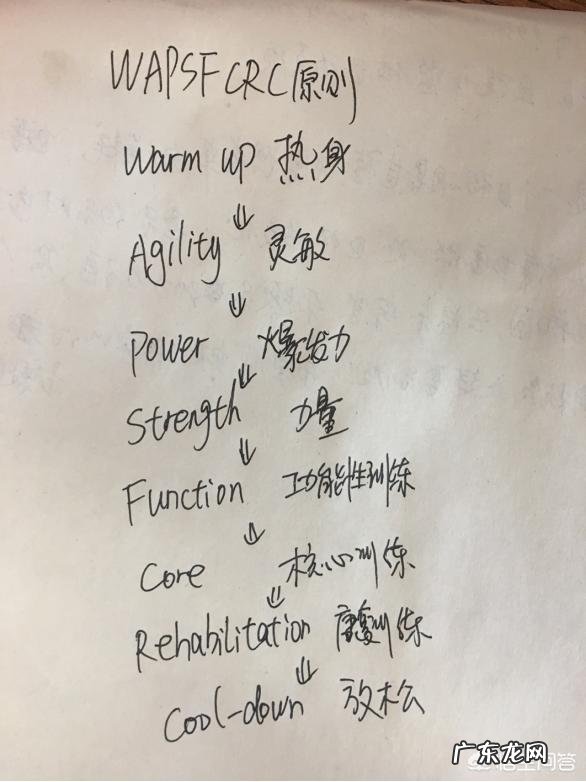 WAPSFCRC原则
Warm up 热身
Agility 灵敏
Power 爆发力
Strength 力量
Function 功能性训练
Core 核心训练
Rehabilitation 康复训练
Cool-down 放松
悟空问答
广东龙网